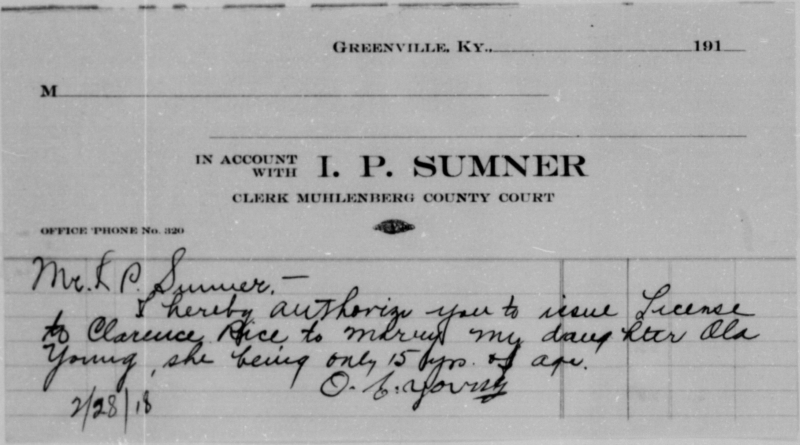 GREENVILLE, KY., 191
M
IN ACCOUNT WITH I. P. SUMNER
CLERK MUHLENBERG COUNTY COURT
OFFICE 'PHONE No. 320
Mr. I. P. Sumner,—
I hereby authorize you to issue License
to Clarence Rice to marry my daughter Ola
Young, she being only 15 yrs. of age.
O. C. Young
2/28/18